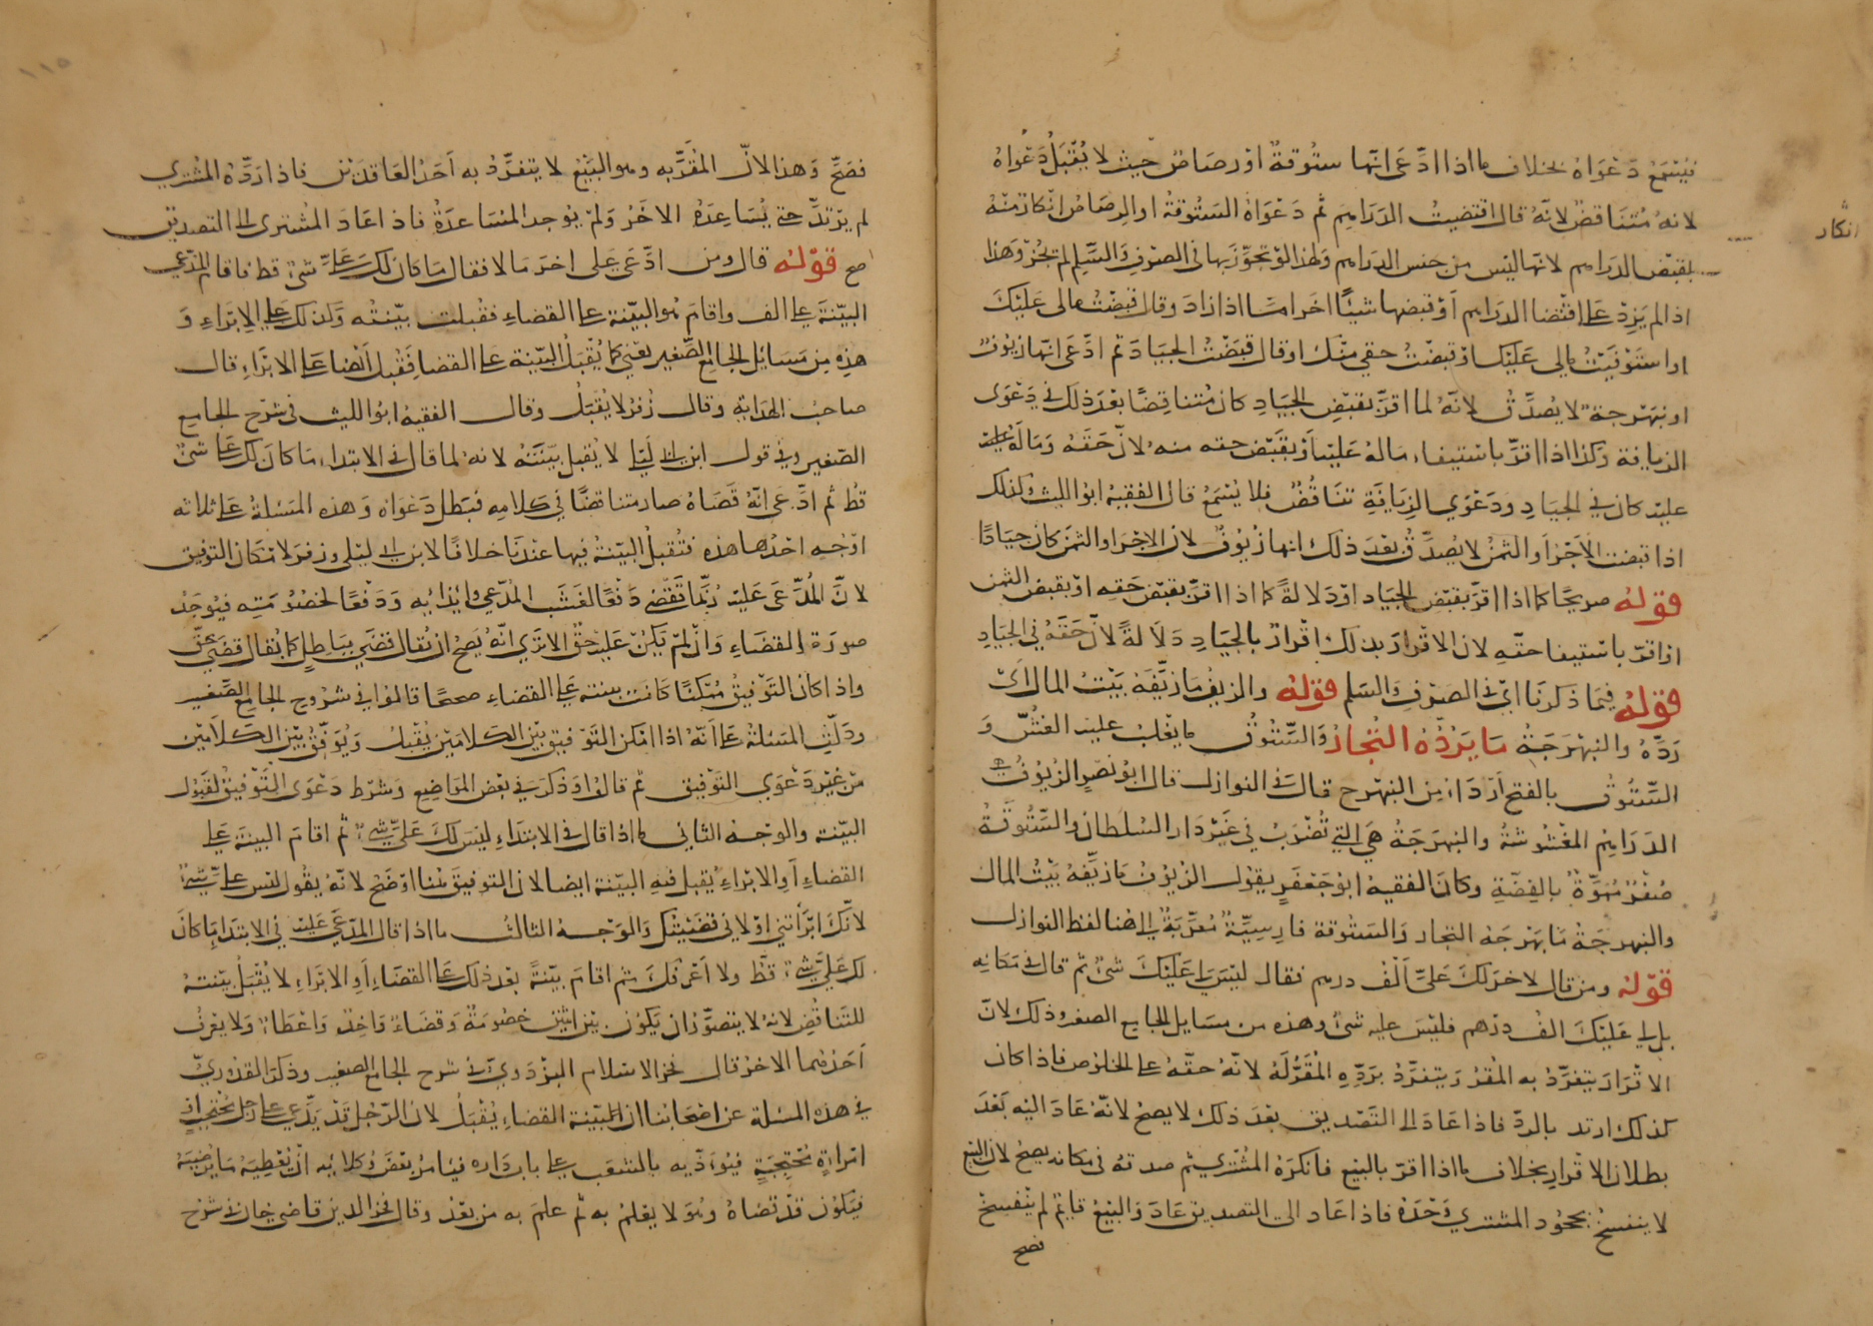 فيُسْمَعُ دَعْوَاهُ بخلاف ما اذا ادَّعَى انّها ستُوقةٌ اوْ رصَاصٌ حيث لا يُقْبَلُ دَعْوَاهُ
لانهُ مُتنَاقضٌ لانّه قال اقتضيتُ الدَرَاهِمَ ثم دَعْوَاهُ السَتُوقةَ او الرصَاصَ انكارٌ منْهُ
انكار
لقبْض الدرَاهم لانها ليْس من جنس الدراهم ولهذا لوْ تجوّز بها فى الصرْفِ والسَّلم لم تجُزْ وهذا
اذا لم يَزدْ على اقتضا الدراهم أوْ قبضها شيئًا اخر امّا اذا زادَ وقال قبضْتُ مالى عَلَيْكَ
او استَوْفَيْتُ مالى عَلَيْك او قبضْتُ حقي منْك او قال قبَضْتُ الجيَادَ ثم ادَّعَى انّها زيوفٌ
او نبَهْرجة لا يُصدَّقُ لانّهُ لما اقرّ بقبْضِ الجيَادِ كان مُتناقِضًا بعْدَ ذلك فى دَعْوَى
الزيافة وكذا اذا اقرّ باسْتيفاءِ مالهُ عَليْه أوْ بقبْض حقه منهُ لانّ حَقّهُ وَمَالَهُ عليه
عليْه كان فى الجيَادِ ودَعْوَي الزِيَافَةِ تنَاقُضٌ فلا يُسْمَعُ قال الفقيهُ ابو الليث وكذلك
اذا قبضت الأَجْرَ أَو الثمنَ لا يُصدَّقُ بعْدَ ذلك انها زُيُوفٌ لان الاجْرَ او الثمنَ كان جيَادًا
قوْلهُ صريحًا كما اذا اقرَّ بقبْضِ الجيَاد اوْ دَلالةً كما اذا اقرّ بقبْض حَقهِ اوْ بقبض الثمن
او اقرّ باسْتيفا حقّهِ لان الاقْرارَ بذلك اقْرارٌ بالجيَادِ دَلَالةً لانّ حَقّهُ فى الجيَادِ
قوْلهُ فيمَا ذكرنَا ايْ فى الصرْفِ والسّلم قوْلهُ والزيفُ مَا زيّفَهُ بَيْتُ المال ايْ
رَدَّهُ والنبهْرَجَةُ مَا يَرُدُّهُ التُجارُ وَالسَّتُوقُ ما يغْلبُ عليْه الغشُّ وَ
السَّتُوقُ بالفتح أرْدَا من النبَهْرج قال فى النوازل قال ابُو نصْرٍ الزيُوفُ هي
الدَرَاهِمُ المغْشُوشةُ والنبهرَجَةُ هيَ التِي تُضْرَبُ فى غيْر دَار السُلطان والسَّتُوقَةُ
صُفْرٌ مُمَوَّهٌ بالفضّةِ وكانَ الفقيهُ ابوُ جَعْفَرٍ يقوْل الزيُوْفُ مَا زيَّفهُ بيْتُ المال
والنبهرجَةُ مَا بَهْرَجَهُ التجار وَالستُوقة فارسِيّةٌ مُعَرَّبَةٌ الى هُنا لفظ النوازل
قوْلهُ ومن قال لاخرَ لكَ عَليَّ أَلْفُ درهم فقال ليْسَ لى عَليْكَ شئٌ ثم قال فى مَكانِهِ
بل لي عَلَيْكَ الفُ درْهم فليْسَ عليه شئٌ وهذه من مسَايل الجامع الصغير وذلك لانّ
الاقْرَارَ يتفرَّدُ به المُقرُّ ويتفرَّدُ برَدِّهِ المُقَرُّ لَهُ لانّهُ حقّهُ على الخلوْص فاذا كان
كذلك ارتد بالردّ فاذا عَادَ الى التَصْديق بعْدَ ذلك لا يصحُ لانّهُ عَادَ اليْهِ بَعْدَ
بطلان الاقْرارِ بخلاف ما اذا اقرّ بالبيْع فانكرَهُ المُشْتري ثم صدقهُ فى مكانه يصحُ لان البيْع
لا ينفسخُ بجحُوْد المشتري وَحْدَهُ فاذا عَاد الى التصديق عَادَ وَالبَيْعُ قايمٌ لم يَنْفسخْ
فصح
١١٥
فصَحَّ وَهذا لانّ المُقَرَّ به وهو البَيْعُ لا يتفرَّدُ به اَحَدُ العَاقدَيْن فاذا رَدَّهُ المُشْتري
لم يرْتدَّ حتى يُسَاعِدَهُ الاخَرُ وَلمْ يوُجد المسَاعدَةُ فاذ اعَادَ المُشترى الى التصديق
صح قوْلهُ قال ومن ادَّعَى عَلى اخرَ مَالا فقال مَا كان لكَ عَليَّ شئٌ قط فاقام المدّعي
البيّنةَ على الف واقامَ هُو البيّنة على القضاءِ فقُبلت بيّنتُه وكذلك على الابْرَاءِ وَ
هذِهِ مِن مَسَائل الجامع الصَّغير يعْنى كما يُقْبَلُ البيّنة على القضا فيُقْبلُ ايْضا على الابْرَاءِ قال
صاحبُ الهدَايةِ وقال زُفرُ لا يُقْبَلُ وقال الفقيهُ ابوُ الليث فى شرْح الجامِع
الصّغير وفى قول ابن ابى ليْلى لا يُقبل بيّنَتُهُ لانهُ لما قال فى الابتداءِ مَا كانَ لك عَلَيَّ شئٌ
قطُ ثم ادَّعَى انّهُ قضَاهُ صار متناقضًا فى كلامِهِ فبَطل دَعْوَاهُ وَهذه المَسْئلةُ على ثلاثه
اوْجُهِ احْدُها هذه فتُقبلُ البيّنةُ فيها عنْدَنَا خلافًا لابن ابي ليْلى وزفرَ لامْكان التوفيق
لانَّ المُدَّعَى عَليْه رُبَّمَا يَقْضى دَفْعًا لشَغَب المُدّعي وايْذائِه وَدَفْعًا لخصُوْمَتِه فيُوْجَدُ
صورَة القضَاءِ وَانْ لمْ يَكنْ عَليْهِ حقٌ الا ترَي انّهُ يَصِحُ ان يُقال قضَي ببَاطِلٍ كما يُقال قضَي بحَقٍّ
واذا كان التَوْفيقُ مُمْكنًا كانَت بينته عَلى القضاءِ صحيحًا قالوُا فى شرُوح الجامع الصّغير
ودَلّتِ المسئلةُ عَلى اَنّهُ اذا امْكن التَوْفيق بَيْن الكلامَيْن يُقْبلُ وَيُوَفّقُ بَيْنَ الكلَامَيْن
منْ غيْر دَعْوَي التَوْفيق ثم قالوُا وَذكرَ فى بعْض المَوَاضِعِ وَشَرْط دَعْوَى التَّوْفيقُ لقبُوْل
البيّنة والوجْهُ الثانى ما اذا قال فى الابتدَاءِ ليْسَ لكَ عَليَّ شئٌ ثم اقامَ البينةَ عَلى
القضاءِ أَوِ الابْرَاءِ يُقبل فيهِ البيّنة ايضا لان التوفيقَ هُنا اوْضَحُ لانّهُ يقُولُ ليس على شئٌ
لانّكَ ابْرَأْتني اوْ لاني قضَيْتُك وَالوَجْهُ الثالثُ ما اذا قال المدّعَى عَليْه فى الابتدَا مَا كانَ
لك عَليَّ شئ قَطُّ ولا اَعْرفكَ ثم اقامَ بيّنةً بعْد ذلك على القضَاءِ أَوِ الابْرَاءِ لا يُقْبَلُ بيّنتهُ
للتَناقُضِ لانهُ لا يتصوَّرُ ان يَكوُن بيْن اثنيْن خصُومَةٌ وَقضَاءٌ وَاخذٌ وَاعْطَاءٌ وَلا يعْرفُ
اَحَدُهُما الاخرَ قال فخرُ الاسْلام البزْدَويّ فى شرح الجامع الصغير وذكرَ القدُوْريّ
فى هذه المسئلة عن اصْحَابنا ان البيّنة القضاءِ يُقْبَلُ لانّ الرّجُل قدْ يدَّعي على رَجُلٍ مُحتجبٍ اوْ
امْرَاةٍ مُحْتجبَةٍ فيُوءَذّيه بالشغَب على باب دَارِه فيَامُرُ بَعْضَ وُكلائِه انْ يُعْطيَهُ مَا يُرْضيْهُ
فيَكوُن قدْ قضَاهُ وهُوَ لا يعْلمُ به ثم علمَ به منْ بعْدُ وقال فخرُ الدين قاضي خان فى شرْح